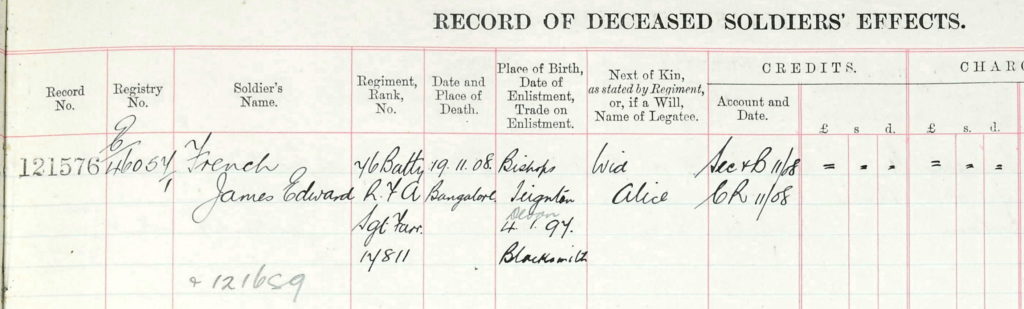 RECORD OF DECEASED SOLDIERS' EFFECTS.
Record No.
Registry No.
Soldier's Name.
Regiment, Rank, No.
Date and Place of Death.
Place of Birth, Date of Enlistment, Trade on Enlistment.
Next of Kin, as stated by Regiment, or, if a Will, Name of Legatee.
CREDITS.
Account and Date.
£ s d.
CHARG
£ s. d.
121576
E/46057/1
French
James Edward
76 Batty
R.F.A
Sgt Farr.
17811
19.11.08.
Bangalore
Bishops
Teignton
Devon
4.1.97.
Blacksmith
Wid
Alice
Sec & B 11/08
CR 11/08
= = =
= = =
& 121659